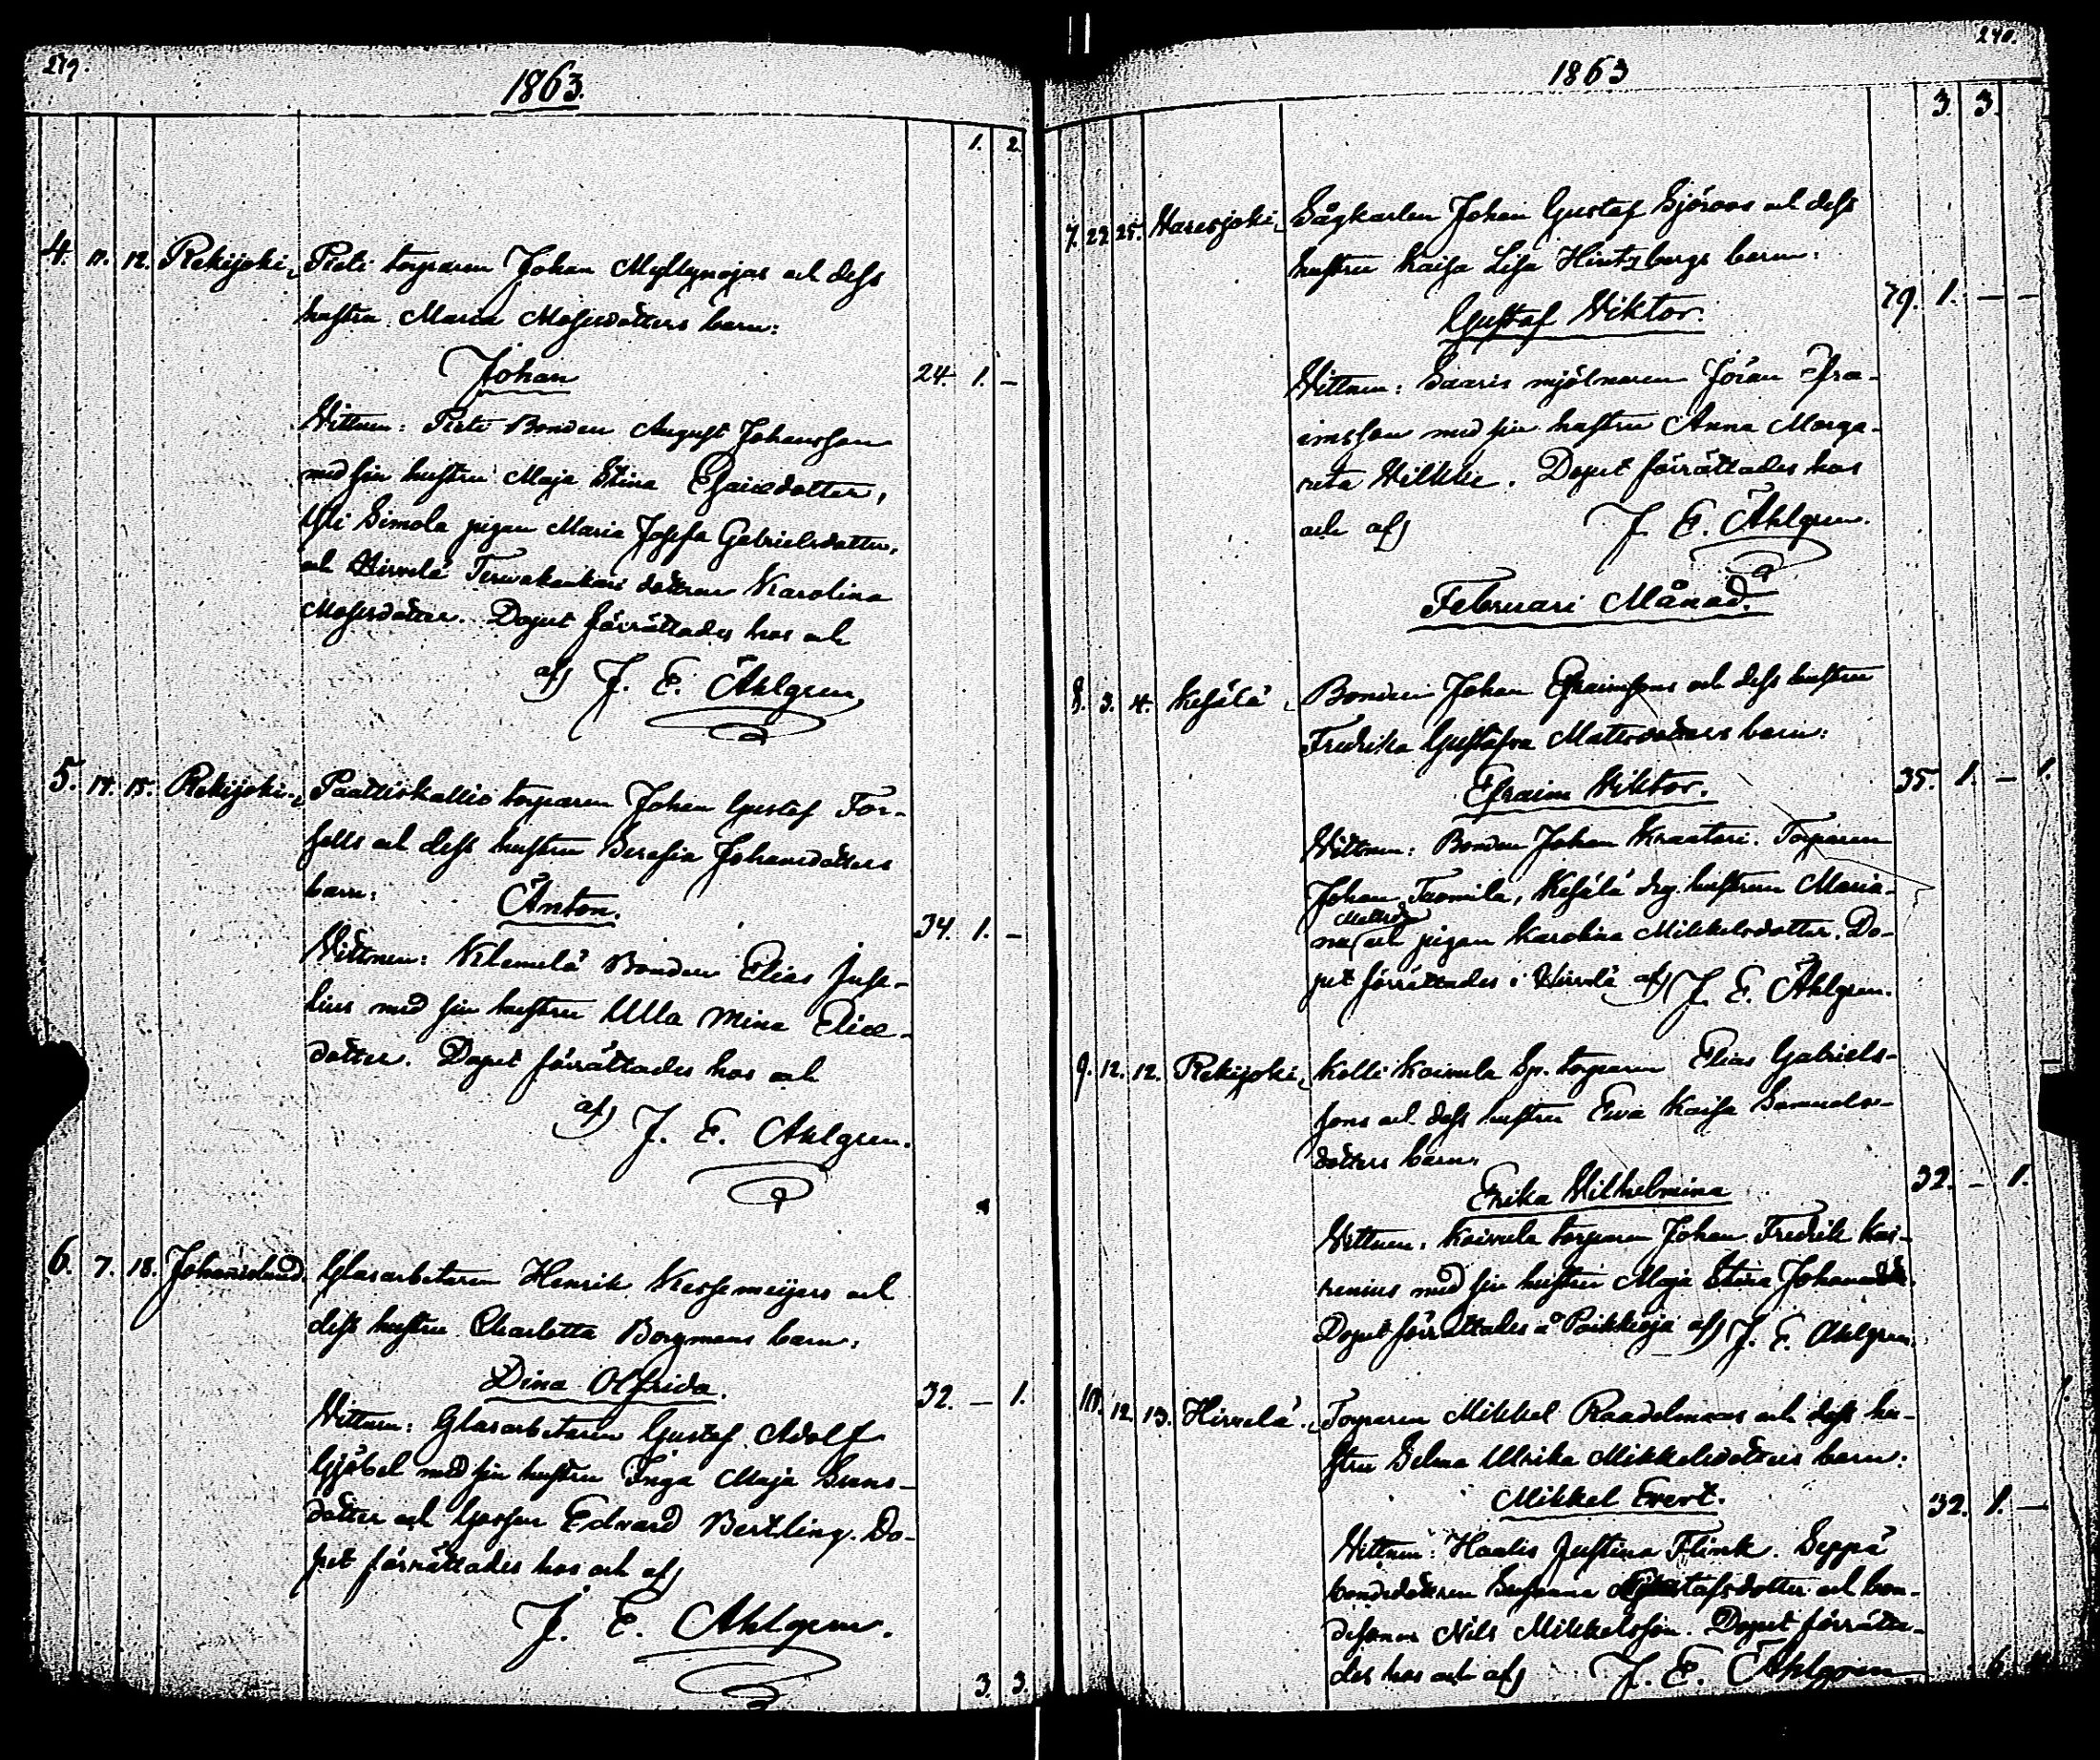 279.
1863.
1. 2.
4. 11. 12. Rekijoki, Pieli torparen Johan Myllynojas och dess
hustru Maria Mosisdotters barn:
Johan
24. 1. –
Vittnen: Bonden August Johansson
med sin hustru Maja Stina Esaiædotter,
Yli Simola pigan Maria Josefa Gabrielsdotter,
och Hirvelä dottren Karolina
Mosisdotter. Dopet förrättades hos och
af J. E. Ahlgren
5. 14. 15. Rekijoki, Paattiskallio torparen Johan Gustaf For-
sells och dess hustru Serafia Johansdotters
barn: Anton.
34. 1. –
Vittnen: Bonden Elias Juse-
lius med sin hustru Ulla Mina Eliæ-
dotter. Dopet förrättades hos och
af J. E. Ahlgren.
6. 7. 18. Johanislund. Glasarbetaren Henrik Kessemeijers och
dess hustru Charlotta Borgmans barn:
Dina Olfrida.
32. – 1.
Vittnen: Glasarbetaren Gustaf Adolf
Gjöbel med sin hustru Inga Maja Svens-
dotter och Gossen Edvard Bertling. Do-
pet förrättades hos och af
J. E. Ahlgren.
3. 3.
240.
1863
3. 3.
7. 22. 25. Haresjoki, Sågkarlen Johan Gustaf Sjöroos och dess
hustru Kaisa Lisa Hintzbergs barn:
Gustaf Viktor.
29. 1. – –
Vittnen: Saaris mjölnaren Jöran Efra-
imsson med sin hustru Anna Marga-
reta Wilkke. Dopet förrättades hos
och af J. E. Ahlgren.
Februari Månad.
8. 3. 4. Kesälä, Bonden Johan Efraimsons och dess hustru
Fredrika Gustafva Mattsdotters barn:
Efraim Viktor.
35. 1. – 1.
Vittnen: Bonden Johan Kraatari. Torparen
Johan Tuomila, Kesälä drg. hustrun Maria-
na Mattsdr och pigan Karolina Mikkelsdotter. Do-
pet förrättades i Hirvelä af J. E. Ahlgren.
9. 12. 12. Rekijoki, Kolli Koivula Sp. torparen Elias Gabriels-
sons och dess hustru Eva Kaisa Samuels-
dotters barn.
Erika Vilhelmina
32. – 1.
Vittnen. Koivula torparen Johan Fredrik Kai-
renius med sin hustru Maja Stina Johansdr.
Dopet förrättades å Poikkioja af J. E. Ahlgren.
10. 12. 13. Hirvelä. Torparen Mikkel Raadelmaas och dess hu-
stru Selma Ulrika Mikkelsdotters barn:
Mikkel Evert.
32. 1. –
Vittnen: Haalis Justina Flink. Seppä
bondedottren Susanna Gustafsdotter och bon-
desonen Nils Mikkelsson. Dopet förrätta-
des hos och af J. E. Ahlgren
6.